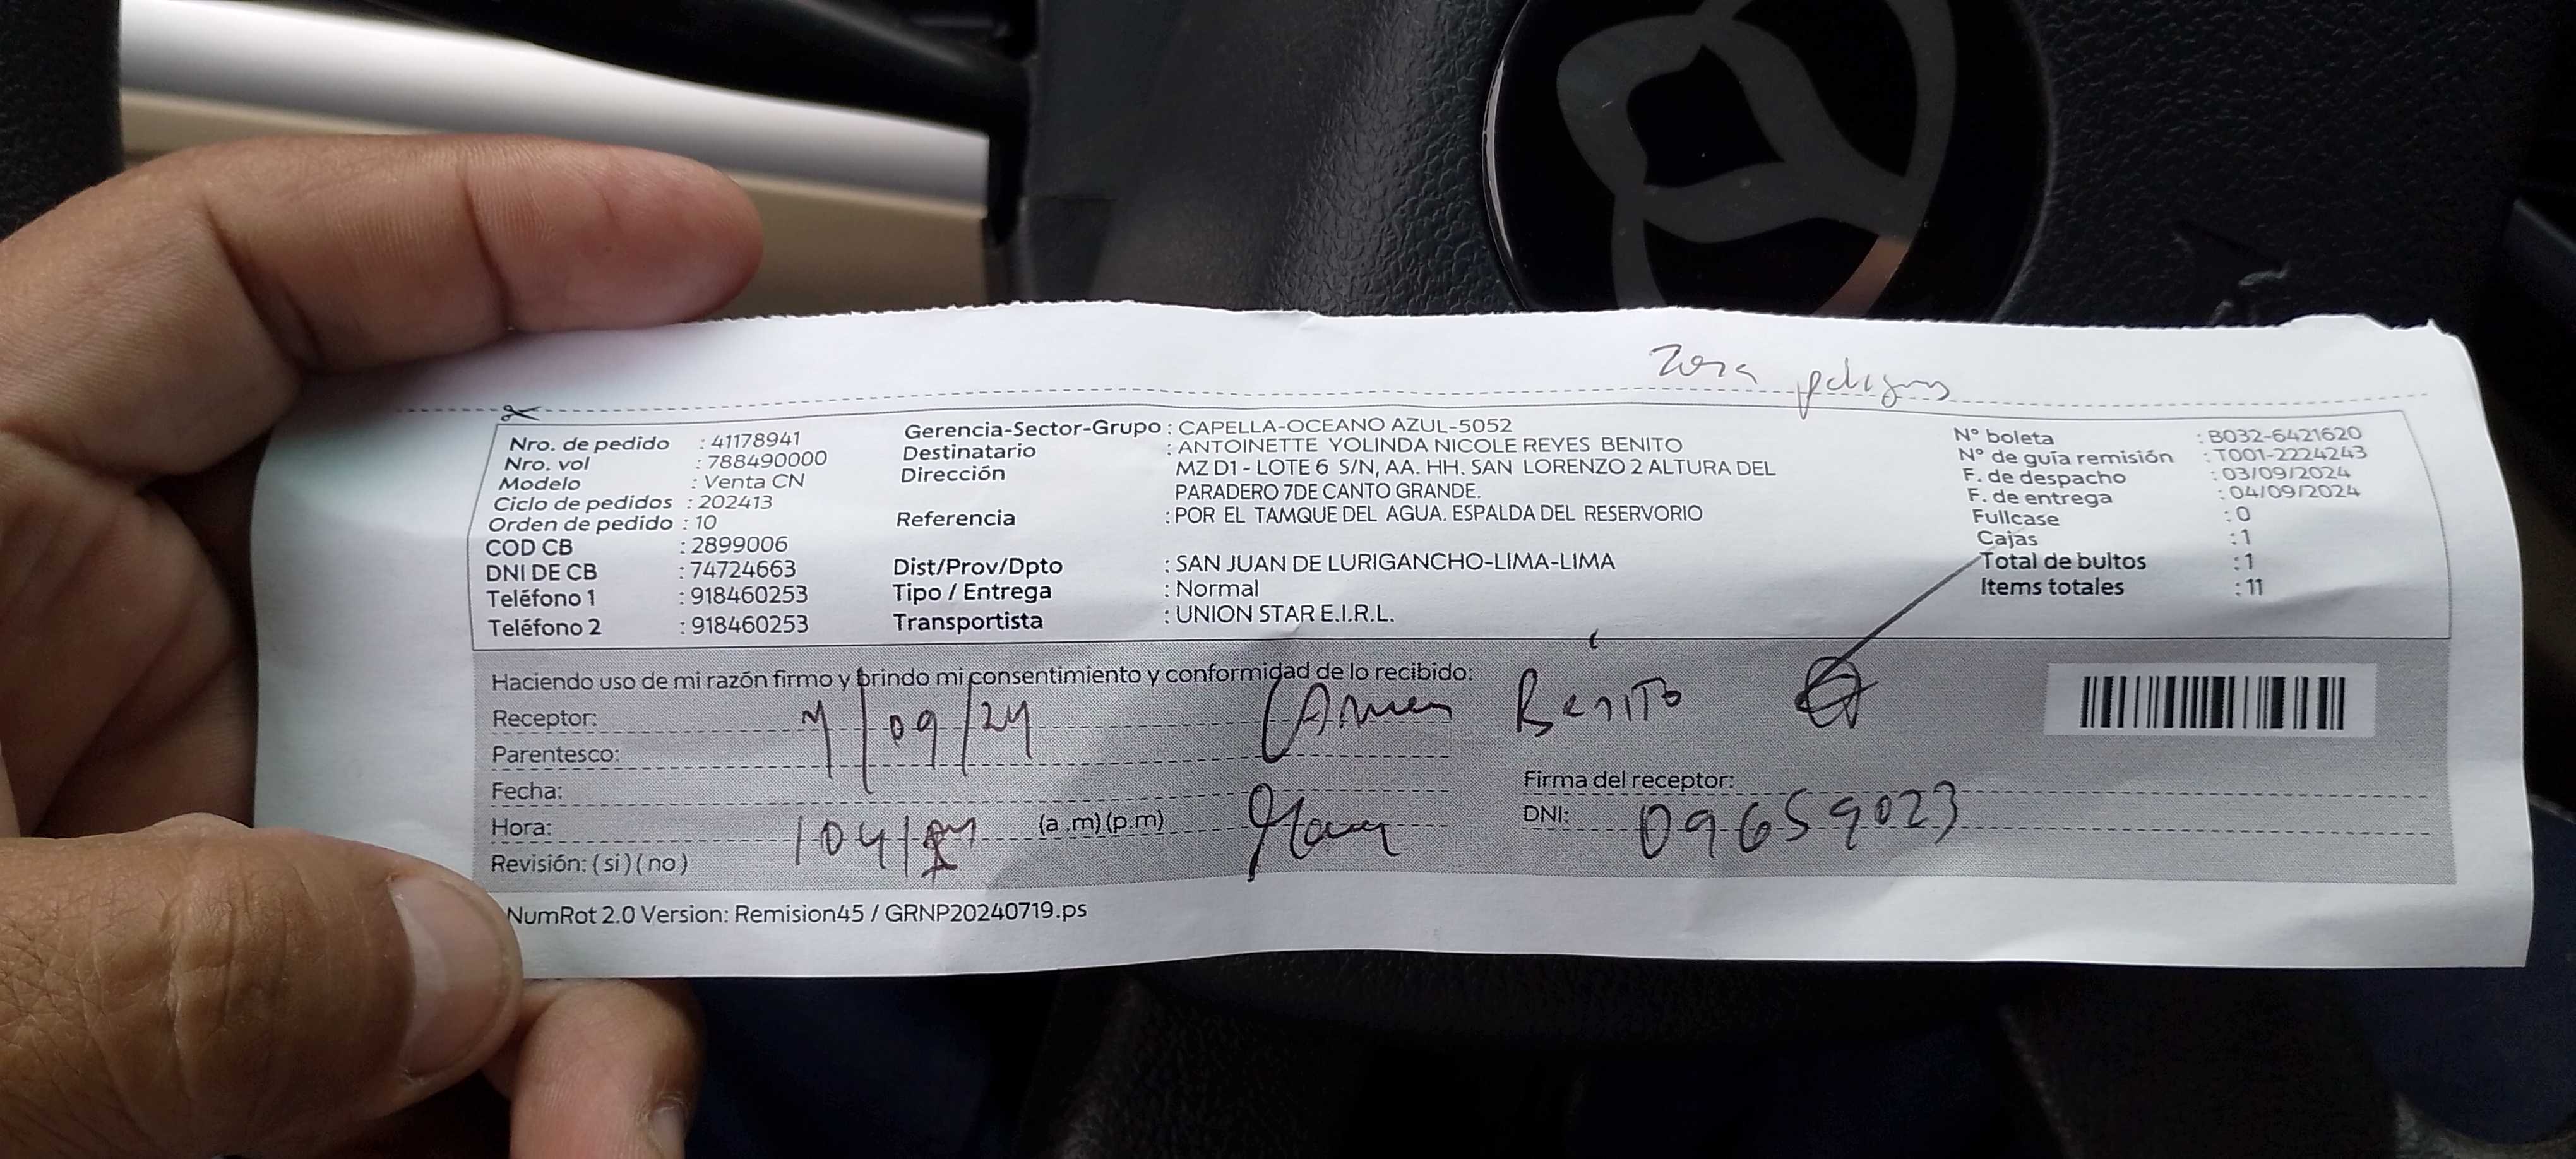 Zona peligros
Nro. de pedido : 41178941
Nro. vol : 788490000
Modelo : Venta CN
Ciclo de pedidos : 202413
Orden de pedido : 10
COD CB : 2899006
DNI DE CB : 74724663
Teléfono 1 : 918460253
Teléfono 2 : 918460253
Gerencia-Sector-Grupo : CAPELLA-OCEANO AZUL-5052
Destinatario : ANTOINETTE YOLINDA NICOLE REYES BENITO
Dirección MZ D1 - LOTE 6 S/N, AA. HH. SAN LORENZO 2 ALTURA DEL
PARADERO 7DE CANTO GRANDE.
Referencia : POR EL TAMQUE DEL AGUA. ESPALDA DEL RESERVORIO
Dist/Prov/Dpto : SAN JUAN DE LURIGANCHO-LIMA-LIMA
Tipo / Entrega : Normal
Transportista : UNION STAR E.I.R.L.
N° boleta : B032-6421620
N° de guía remisión : T001-2224243
F. de despacho : 03/09/2024
F. de entrega : 04/09/2024
Fullcase : 0
Cajas : 1
Total de bultos : 1
Items totales : 11
Haciendo uso de mi razón firmo y brindo mi consentimiento y conformidad de lo recibido:
Receptor: /09/24 Benito
Parentesco:
Fecha:
Hora: (a .m) (p.m)
Revisión: ( si ) ( no )
Firma del receptor:
DNI: 09659023
NumRot 2.0 Version: Remision45 / GRNP20240719.ps